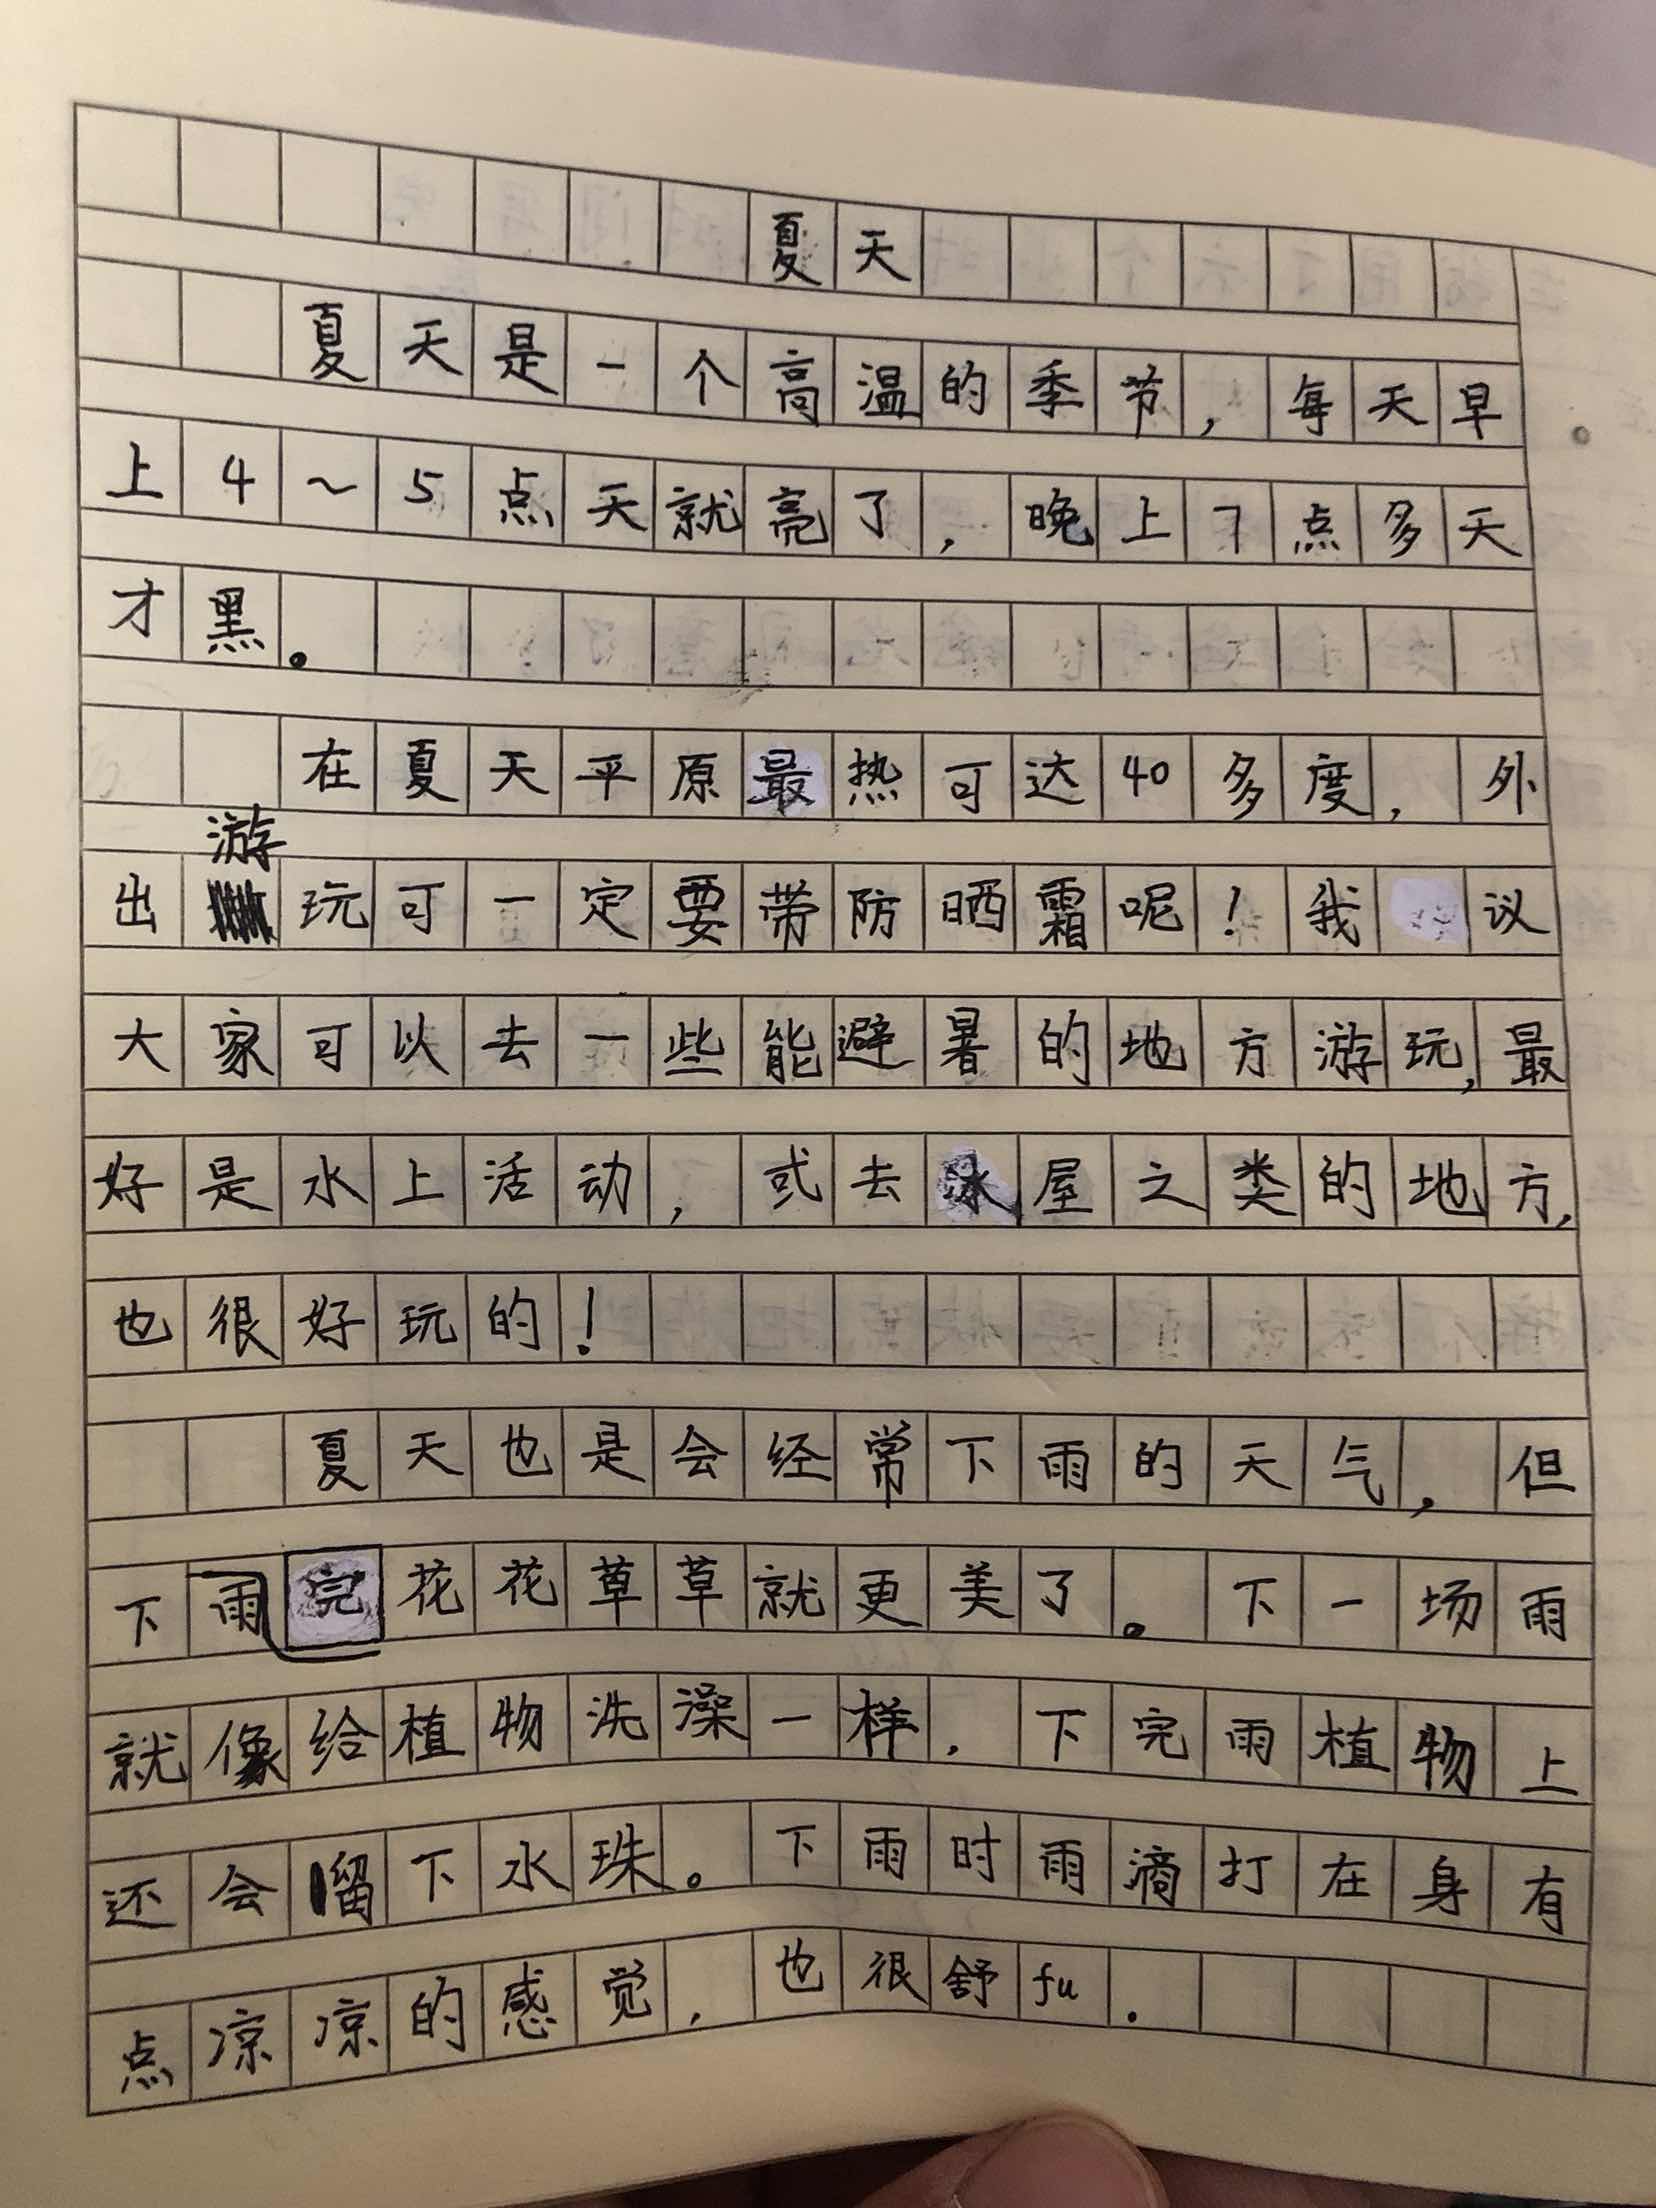 夏天
夏天是一个高温的季节，每天早
上4～5点天就亮了，晚上7点多天
才黑。
在夏天平原最热可达40多度，外
出游玩可一定要带防晒霜呢！我议
大家可以去一些能避暑的地方游玩，最
好是水上活动，或去冰屋之类的地方，
也很好玩的！
夏天也是会经常下雨的天气，但
下雨完花花草草就更美了。下一场雨
就像给植物洗澡一样，下完雨植物上
还会留下水珠。下雨时雨滴打在身有
点凉凉的感觉，也很舒fu.